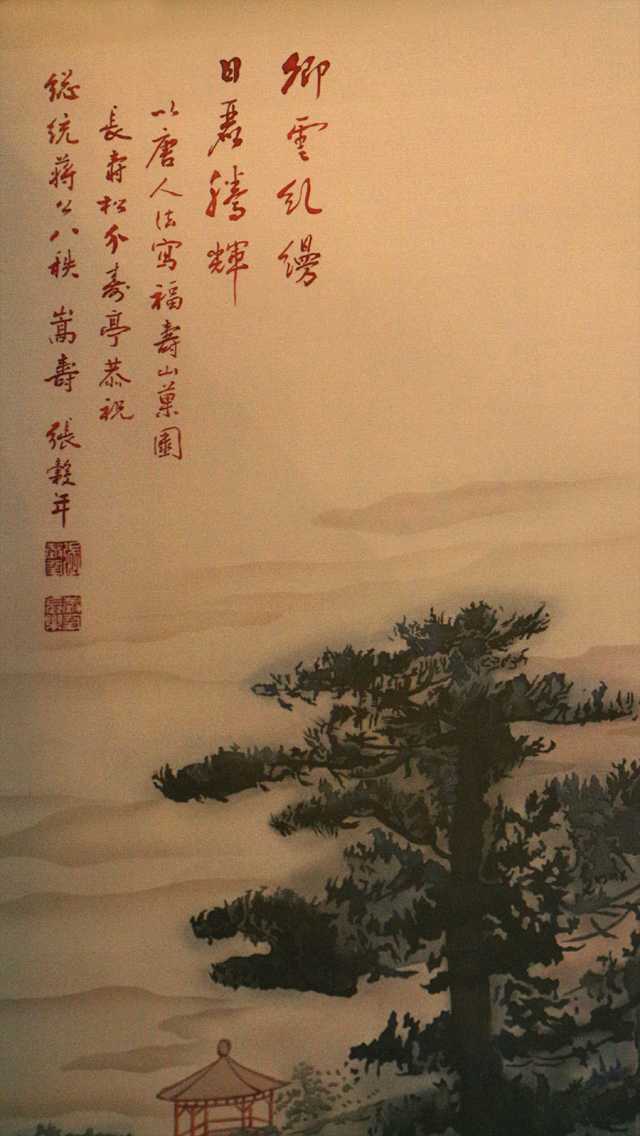 卿雲糺縵
日麗騰輝
以唐人法寫福壽山菓園
長壽松介壽亭恭祝
總統蔣公八秩 嵩壽 張穀年